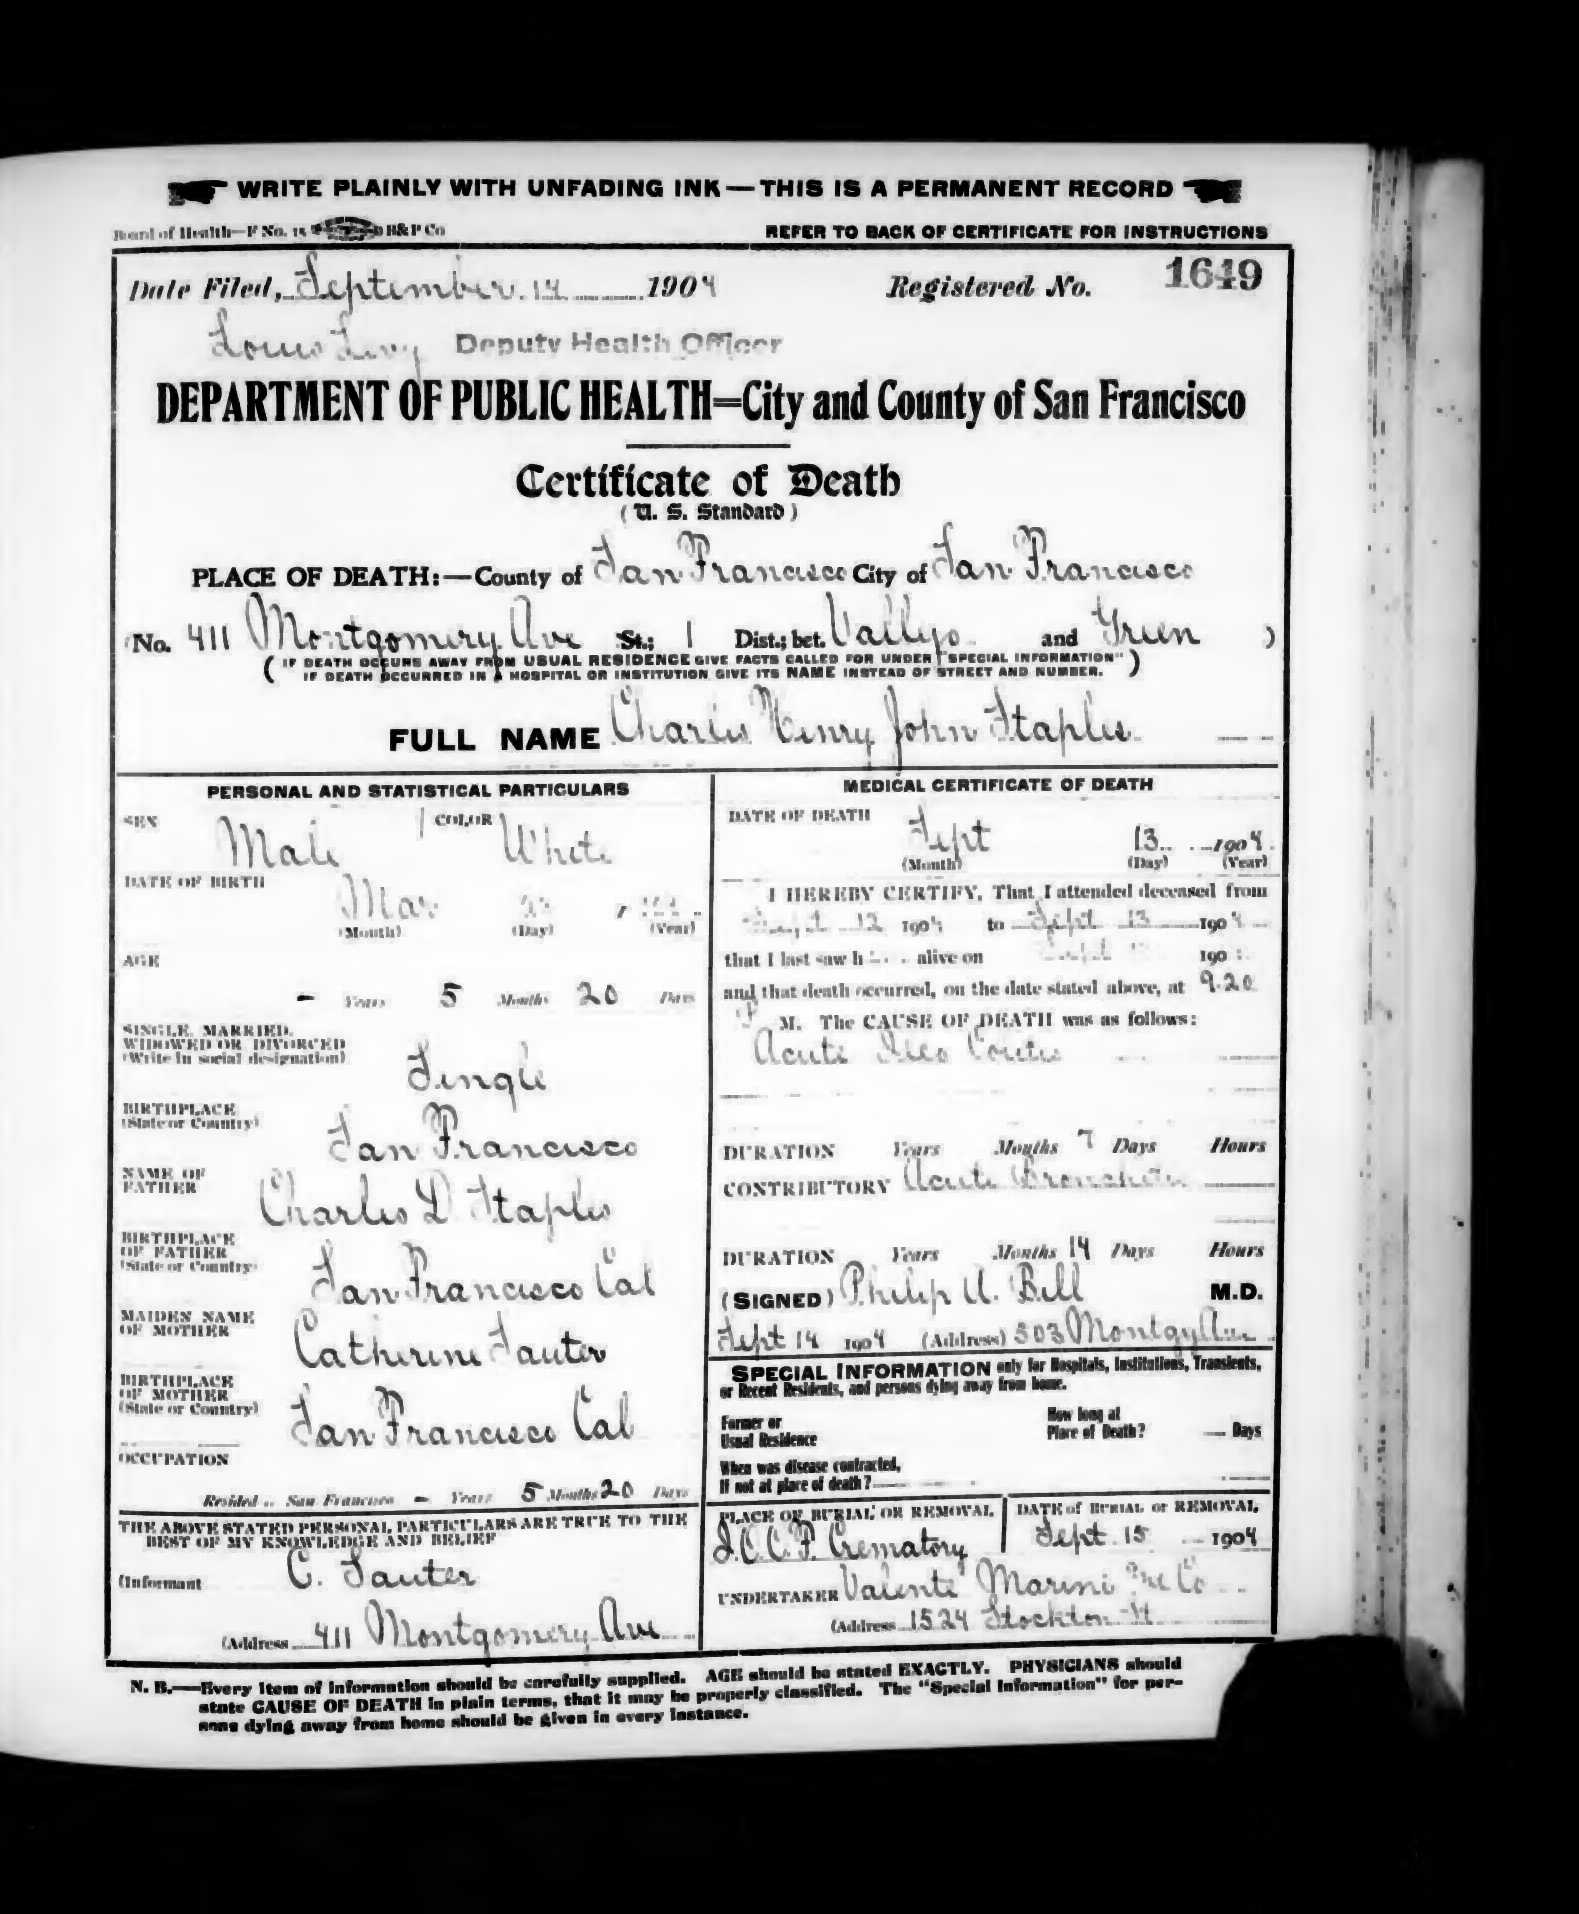 WRITE PLAINLY WITH UNFADING INK — THIS IS A PERMANENT RECORD
Board of Health—F No. 15 H&P Co
REFER TO BACK OF CERTIFICATE FOR INSTRUCTIONS
Date Filed, September 14 1904 Registered No. 1649
Louis Levy Deputy Health Officer
DEPARTMENT OF PUBLIC HEALTH=City and County of San Francisco
Certificate of Death
(U. S. Standard)
PLACE OF DEATH:—County of San Francisco City of San Francisco
(No. 411 Montgomery Ave St.; 1 Dist.; bet. Vallejo and Green )
( IF DEATH OCCURS AWAY FROM USUAL RESIDENCE GIVE FACTS CALLED FOR UNDER "SPECIAL INFORMATION" )
IF DEATH OCCURRED IN A HOSPITAL OR INSTITUTION GIVE ITS NAME INSTEAD OF STREET AND NUMBER.
FULL NAME Charles Henry John Staples
PERSONAL AND STATISTICAL PARTICULARS
SEX Male COLOR White
DATE OF BIRTH
Mar
(Month) (Day) (Year)
AGE
— Years 5 Months 20 Days
SINGLE, MARRIED,
WIDOWED OR DIVORCED
(Write in social designation)
Single
BIRTHPLACE
(State or Country)
San Francisco
NAME OF
FATHER
Charles D Staples
BIRTHPLACE
OF FATHER
(State or Country)
San Francisco Cal
MAIDEN NAME
OF MOTHER
Catherine Sauter
BIRTHPLACE
OF MOTHER
(State or Country)
San Francisco Cal
OCCUPATION
Resided in San Francisco — Years 5 Months 20 Days
THE ABOVE STATED PERSONAL PARTICULARS ARE TRUE TO THE
BEST OF MY KNOWLEDGE AND BELIEF
(Informant C. Sauter
(Address 411 Montgomery Ave
MEDICAL CERTIFICATE OF DEATH
DATE OF DEATH
Sept 13 1904
(Month) (Day) (Year)
I HEREBY CERTIFY, That I attended deceased from
Sept 12 1904 to Sept 13 1904
that I last saw h alive on Sept 190
and that death occurred, on the date stated above, at 9.20
P M. The CAUSE OF DEATH was as follows:
Acute Ileo Colitis
DURATION Years Months 7 Days Hours
CONTRIBUTORY Acute Bronchitis
DURATION Years Months 14 Days Hours
(SIGNED) Philip A. Bill M.D.
Sept 14 1904 (Address) 503 Montgy Ave
SPECIAL INFORMATION only for Hospitals, Institutions, Transients,
or Recent Residents, and persons dying away from home.
Former or
Usual Residence
How long at
Place of Death? — Days
When was disease contracted,
If not at place of death?
PLACE OF BURIAL OR REMOVAL
I.O.O.F. Crematory
DATE of BURIAL or REMOVAL
Sept 15 1904
UNDERTAKER Valente Marini & Co
(Address 1524 Stockton St
N. B.—Every item of information should be carefully supplied. AGE should be stated EXACTLY. PHYSICIANS should
state CAUSE OF DEATH in plain terms, that it may be properly classified. The "Special Information" for per-
sons dying away from home should be given in every instance.